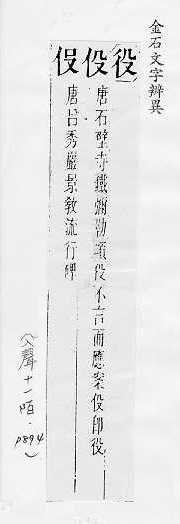 金石文字辨異
役
伇 唐石壁寺鐵彌勒頌伇不言而應案伇即役
唐呂秀巖景教流行碑
(入聲十一陌．p894)